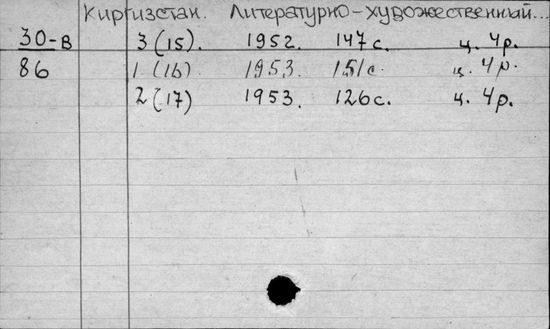 Киргизстан. Литературно-художественный...
30-в 3 (15). 1952. 147 с. ц. 4 р.
86 1 (16) 1953. 151 с. ц. 4 р.
2 (17) 1953. 126 с. ц. 4 р.